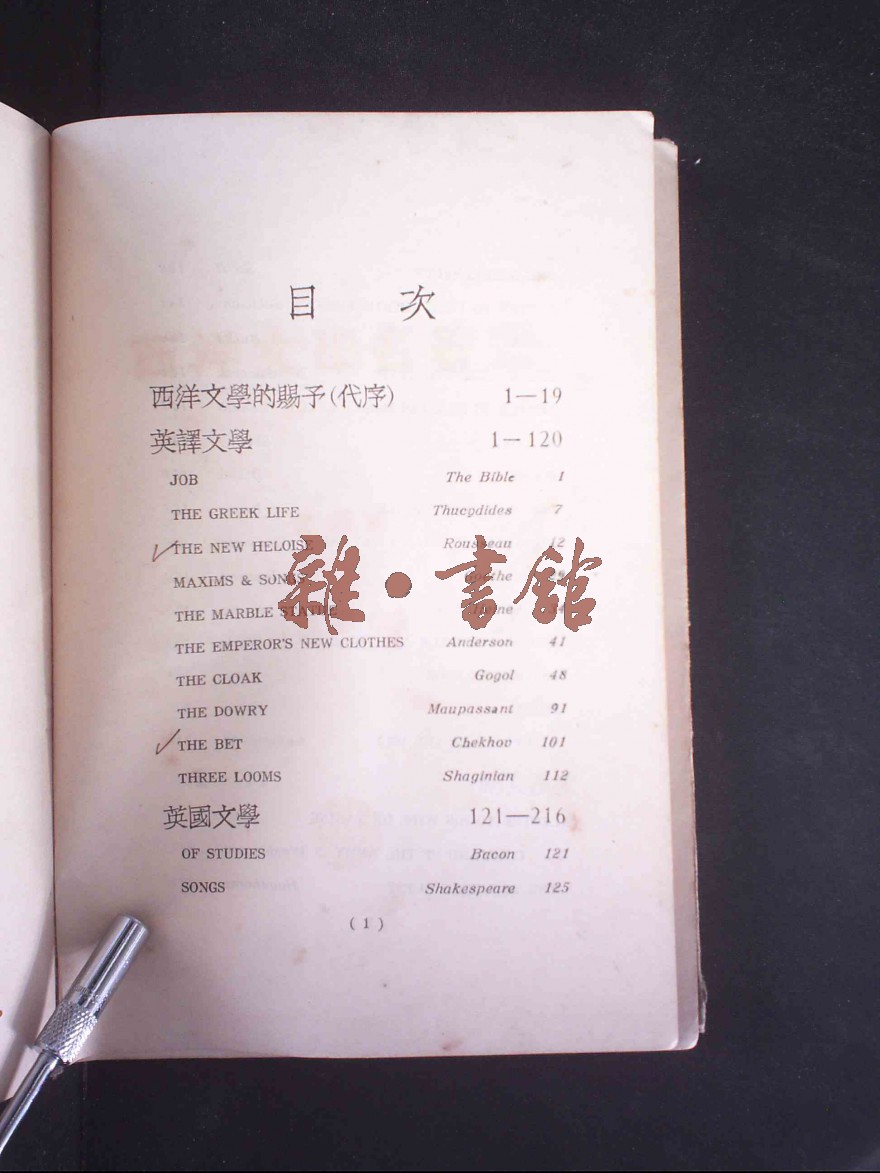 目 次
西洋文學的賜予(代序) 1—19
英譯文學 1—120
JOB The Bible 1
THE GREEK LIFE Thucydides 7
THE NEW HELOISE Rousseau 12
MAXIMS & SONGS
THE MARBLE STATUE
雜·書館
THE EMPEROR'S NEW CLOTHES Anderson 41
THE CLOAK Gogol 48
THE DOWRY Maupassant 91
THE BET Chekhov 101
THREE LOOMS Shaginian 112
英國文學 121—216
OF STUDIES Bacon 121
SONGS Shakespeare 125
( 1 )